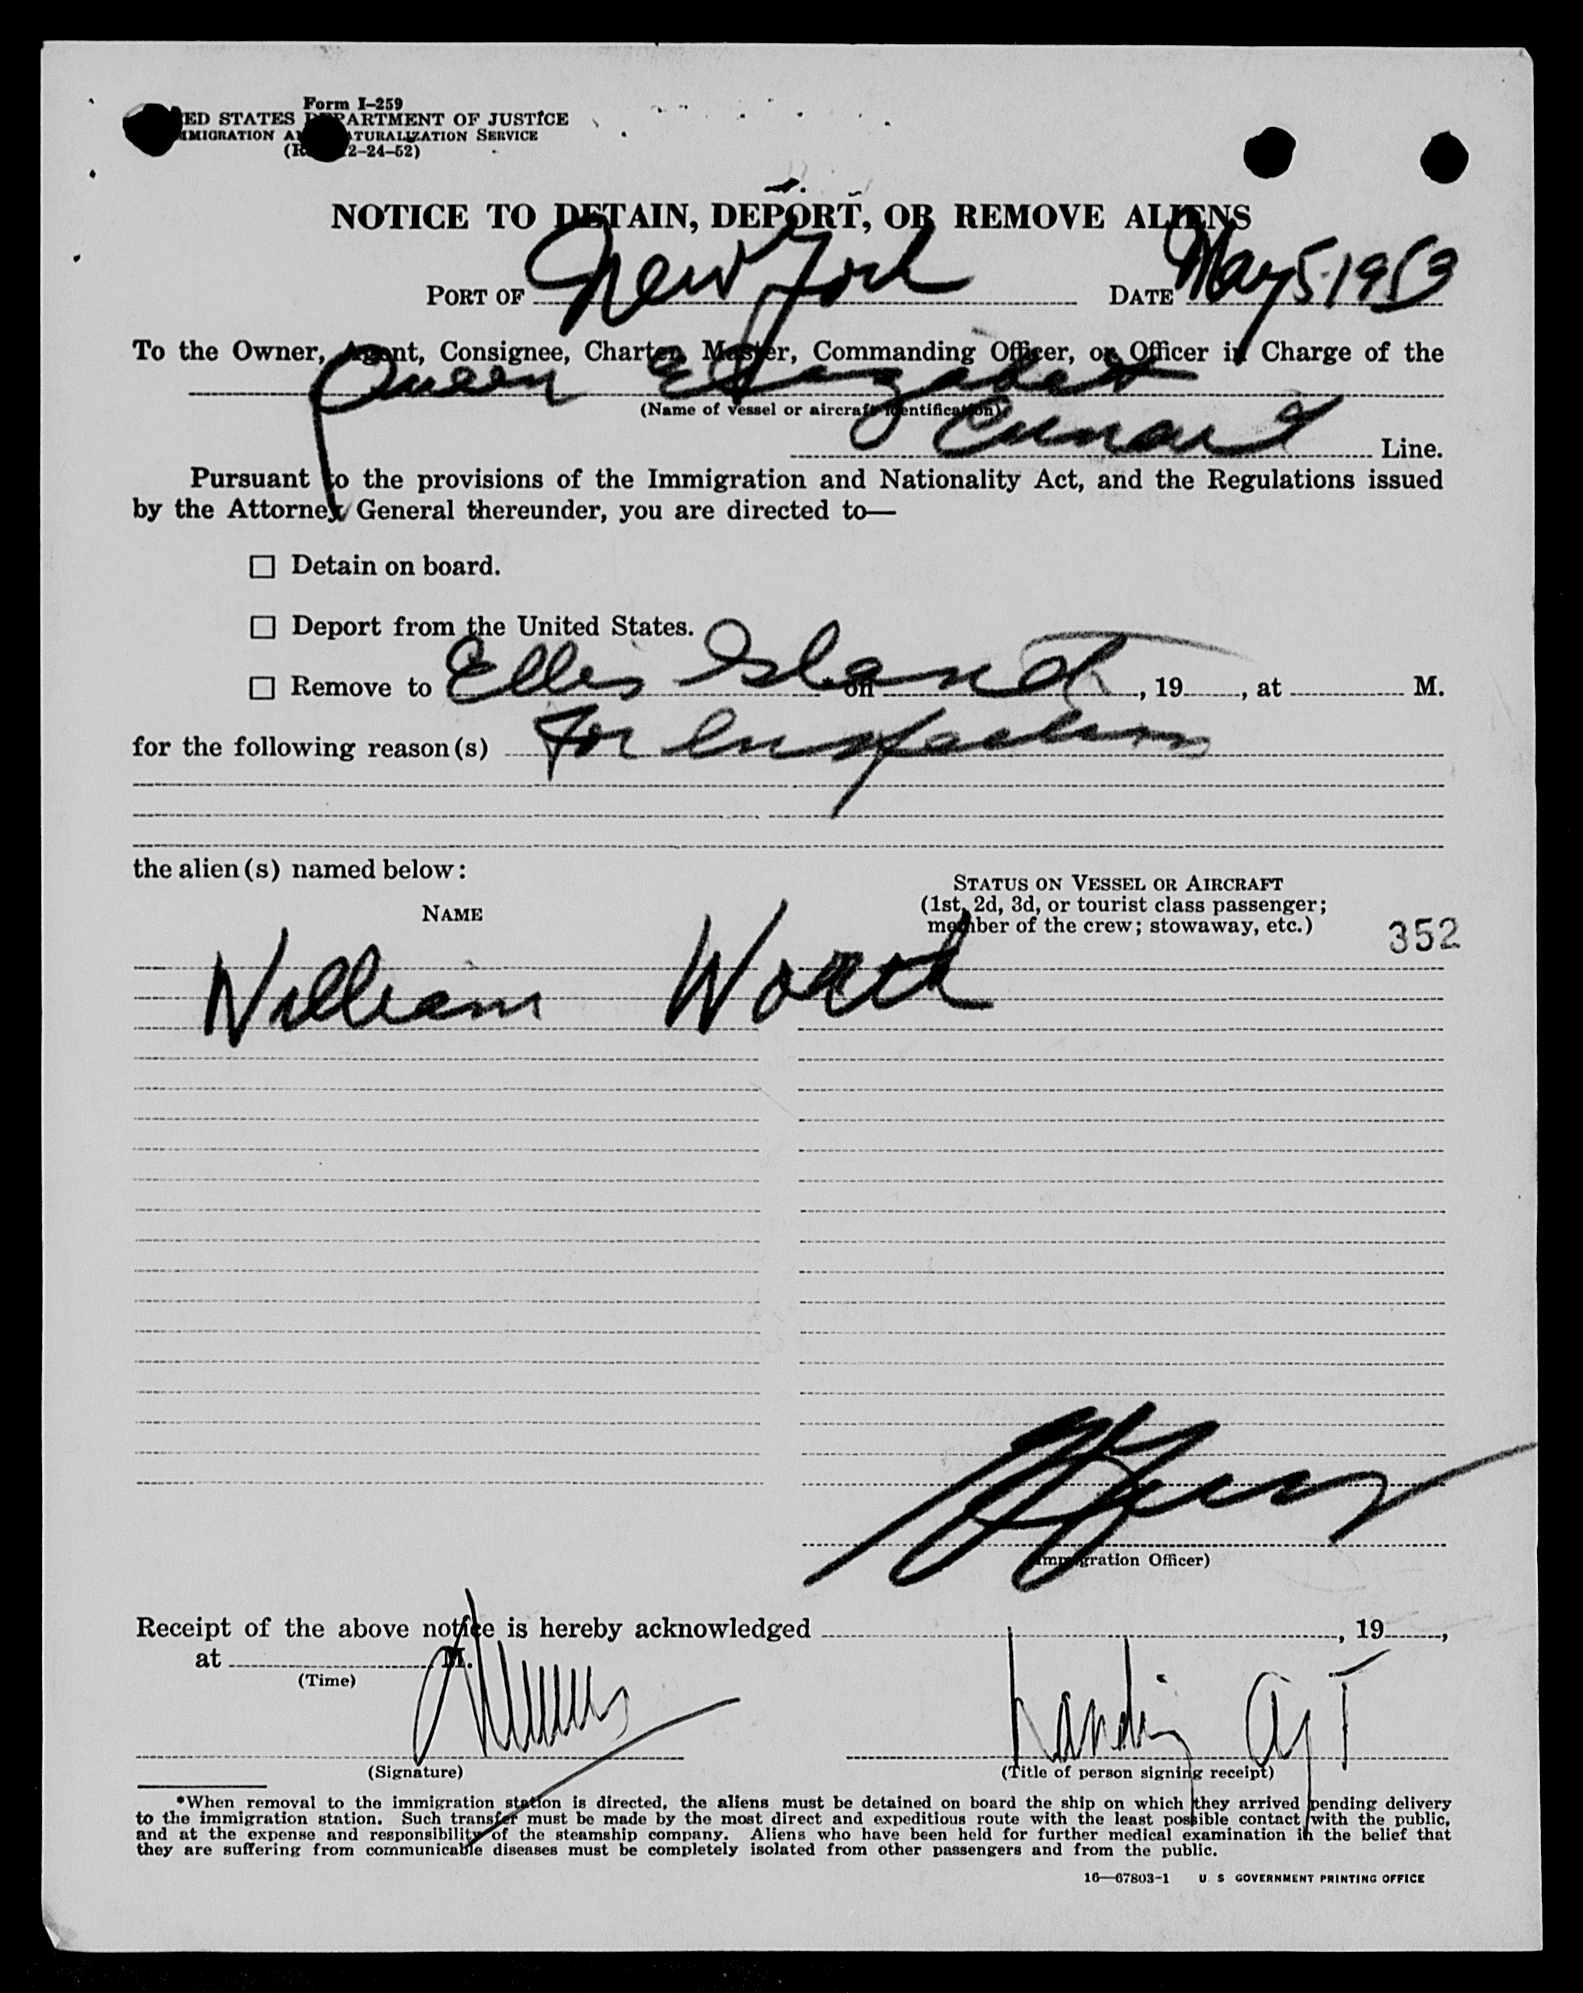 Form I–259
ED STATES DEPARTMENT OF JUSTICE
IMMIGRATION AND NATURALIZATION SERVICE
(R 2–24–52)
NOTICE TO DETAIN, DEPORT, OR REMOVE ALIENS
PORT OF New York DATE May 5 1953
To the Owner, Agent, Consignee, Charter, Master, Commanding Officer, or Officer in Charge of the
Queen Elizabeth
(Name of vessel or aircraft identification)
Cunard Line.
Pursuant to the provisions of the Immigration and Nationality Act, and the Regulations issued
by the Attorney General thereunder, you are directed to—
☐ Detain on board.
☐ Deport from the United States.
☐ Remove to Ellis Island on , 19 , at M.
for the following reason(s) for inspection
the alien(s) named below:
NAME
STATUS ON VESSEL OR AIRCRAFT
(1st, 2d, 3d, or tourist class passenger;
member of the crew; stowaway, etc.)
352
William Worth
(Immigration Officer)
Receipt of the above notice is hereby acknowledged , 19 ,
at M.
(Time)
Landing Agt
(Signature) (Title of person signing receipt)
*When removal to the immigration station is directed, the aliens must be detained on board the ship on which they arrived pending delivery
to the immigration station. Such transfer must be made by the most direct and expeditious route with the least possible contact with the public,
and at the expense and responsibility of the steamship company. Aliens who have been held for further medical examination in the belief that
they are suffering from communicable diseases must be completely isolated from other passengers and from the public.
16—67803-1 U S GOVERNMENT PRINTING OFFICE